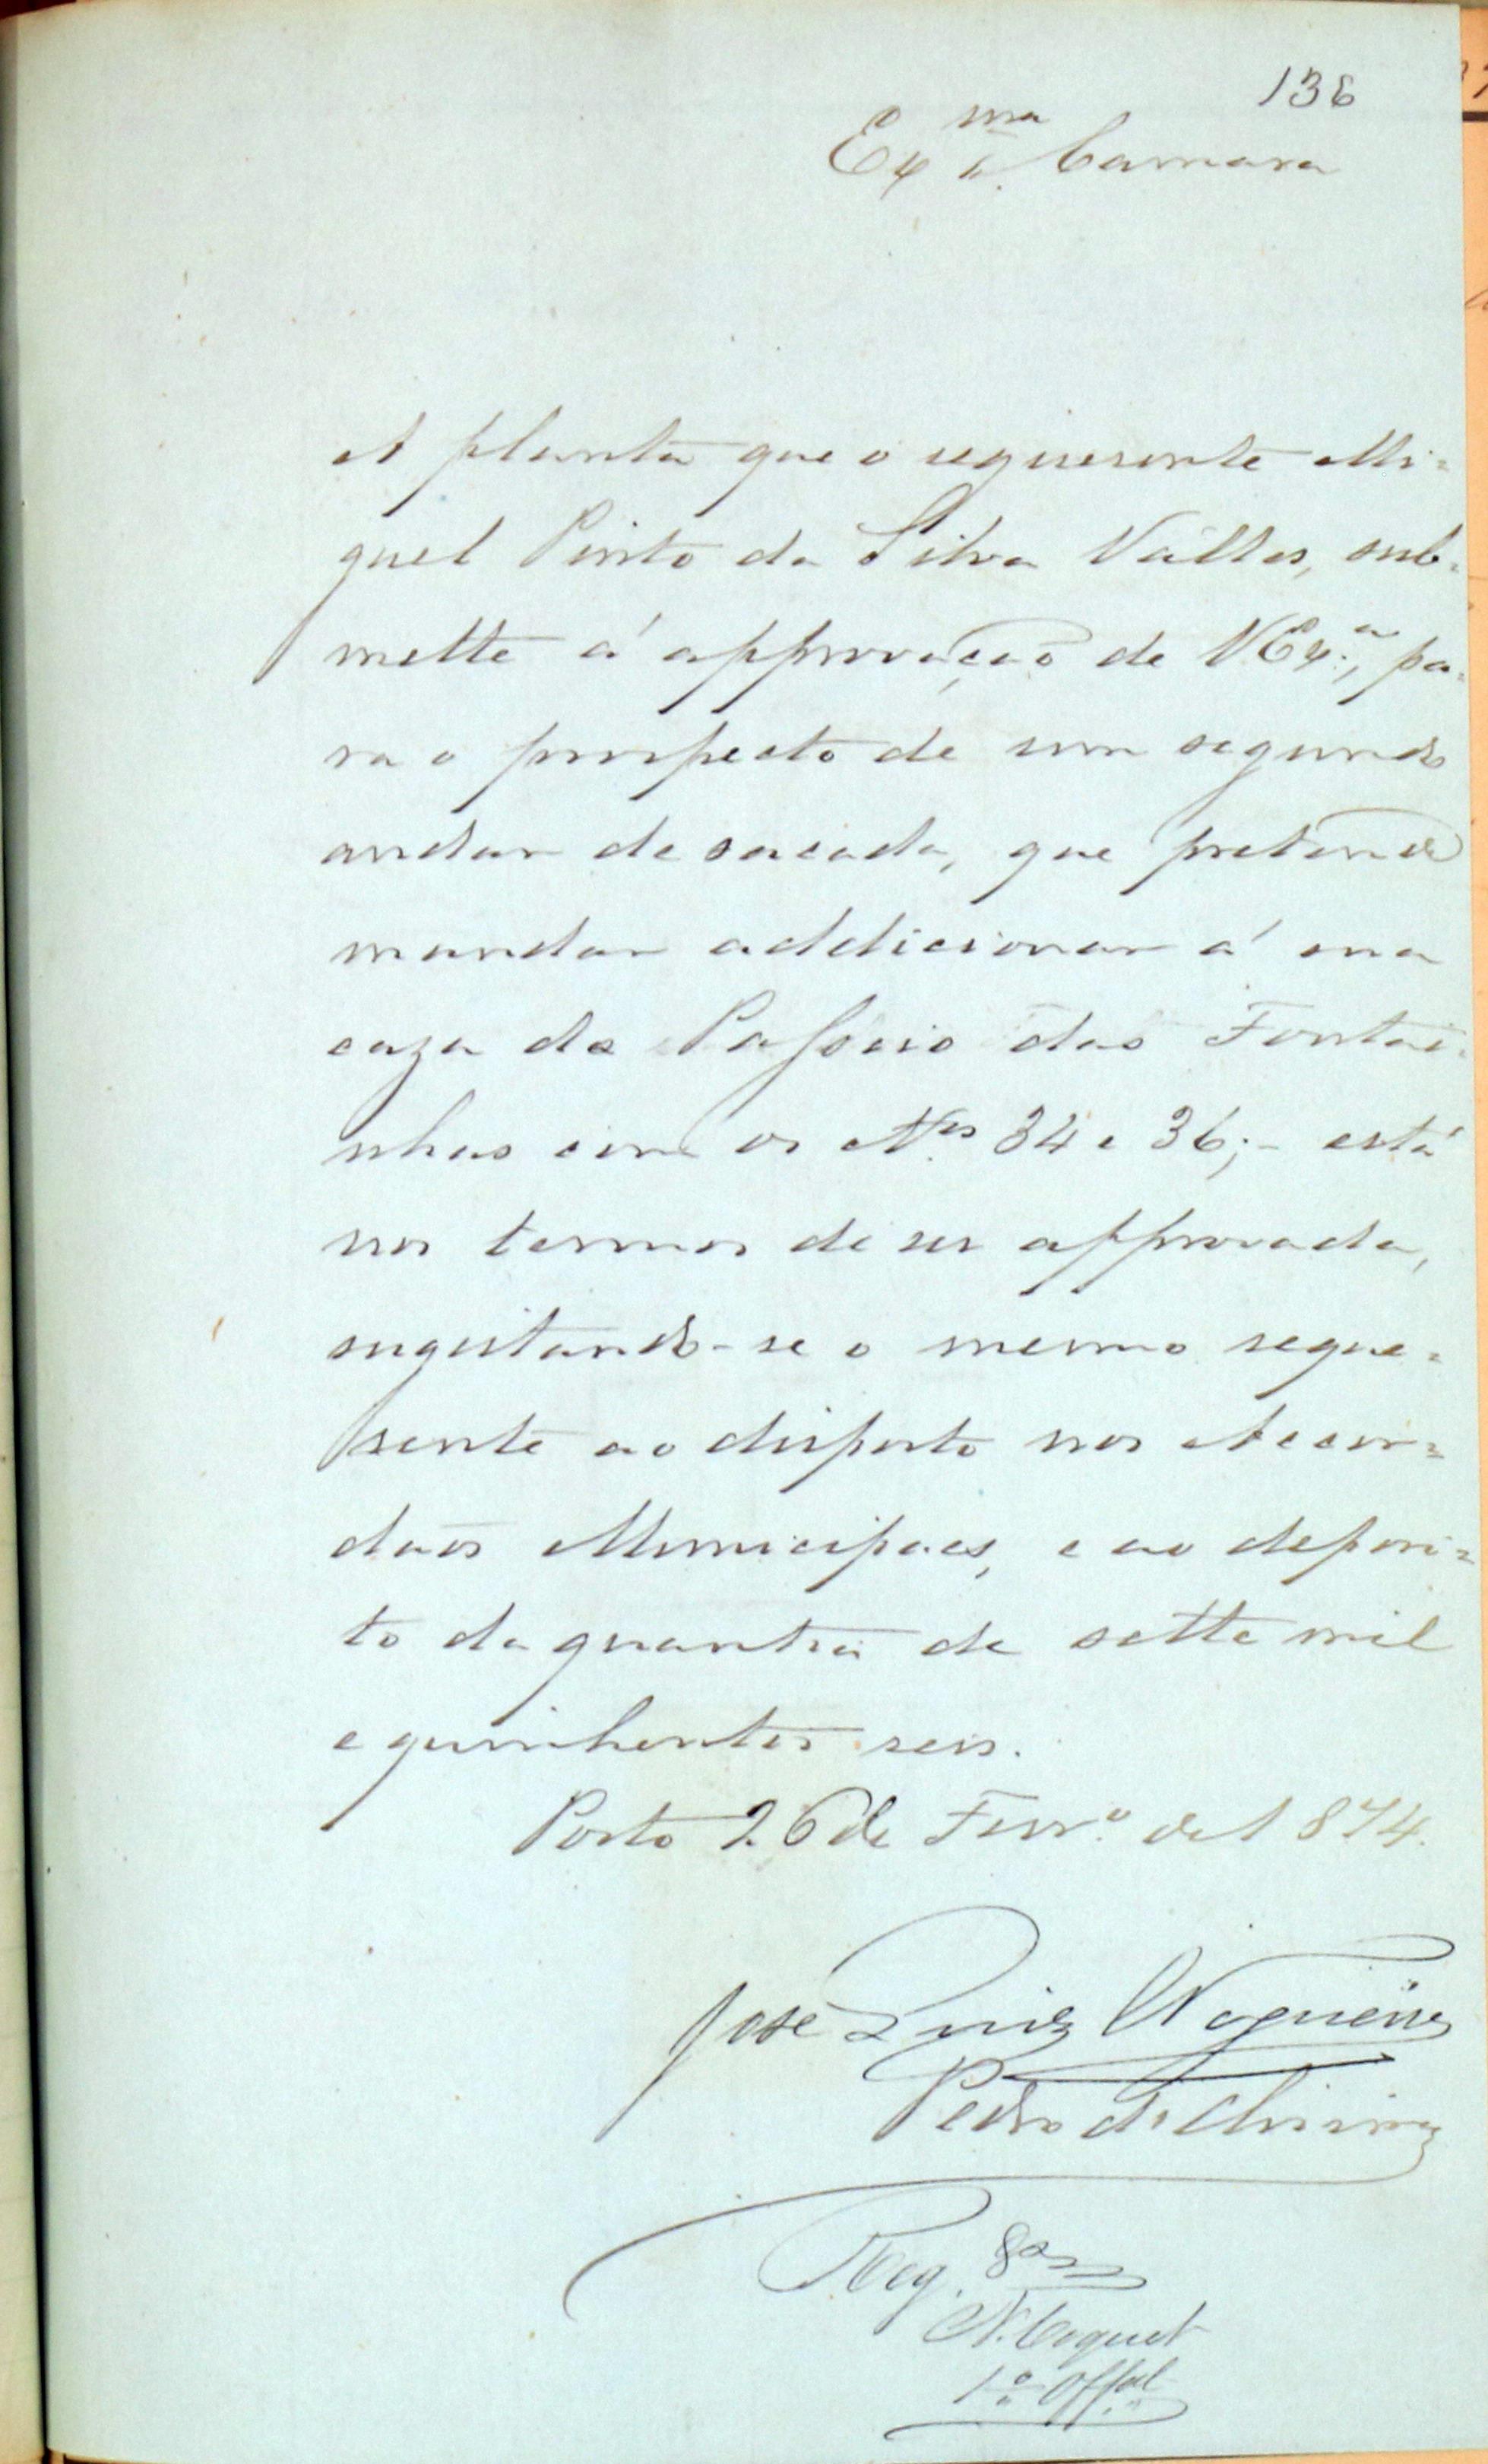 136
Exma Camara
A planta que o requerente Mi=
guel Pinto da Silva Valles, sub=
mette á approvação de V.Exa., pa=
ra o prospecto de um segundo
andar de sacada, que pretende
mandar addicionar á sua
caza do Passeio das Fontai=
nhas com os Nos 34 e 36; - está
nos termos de ser approvada,
sugeitando-se o mesmo reque=
rente ao disposto nos Accor=
dãos Municipaes, e ao deposi=
to da quantia de sette mil
e quinhentos reis.
Porto 26 de Fevro de 1874.
José Luiz Nogueira
Pedro d'Oliveira
Reg.
N. Coquet
1o Offal